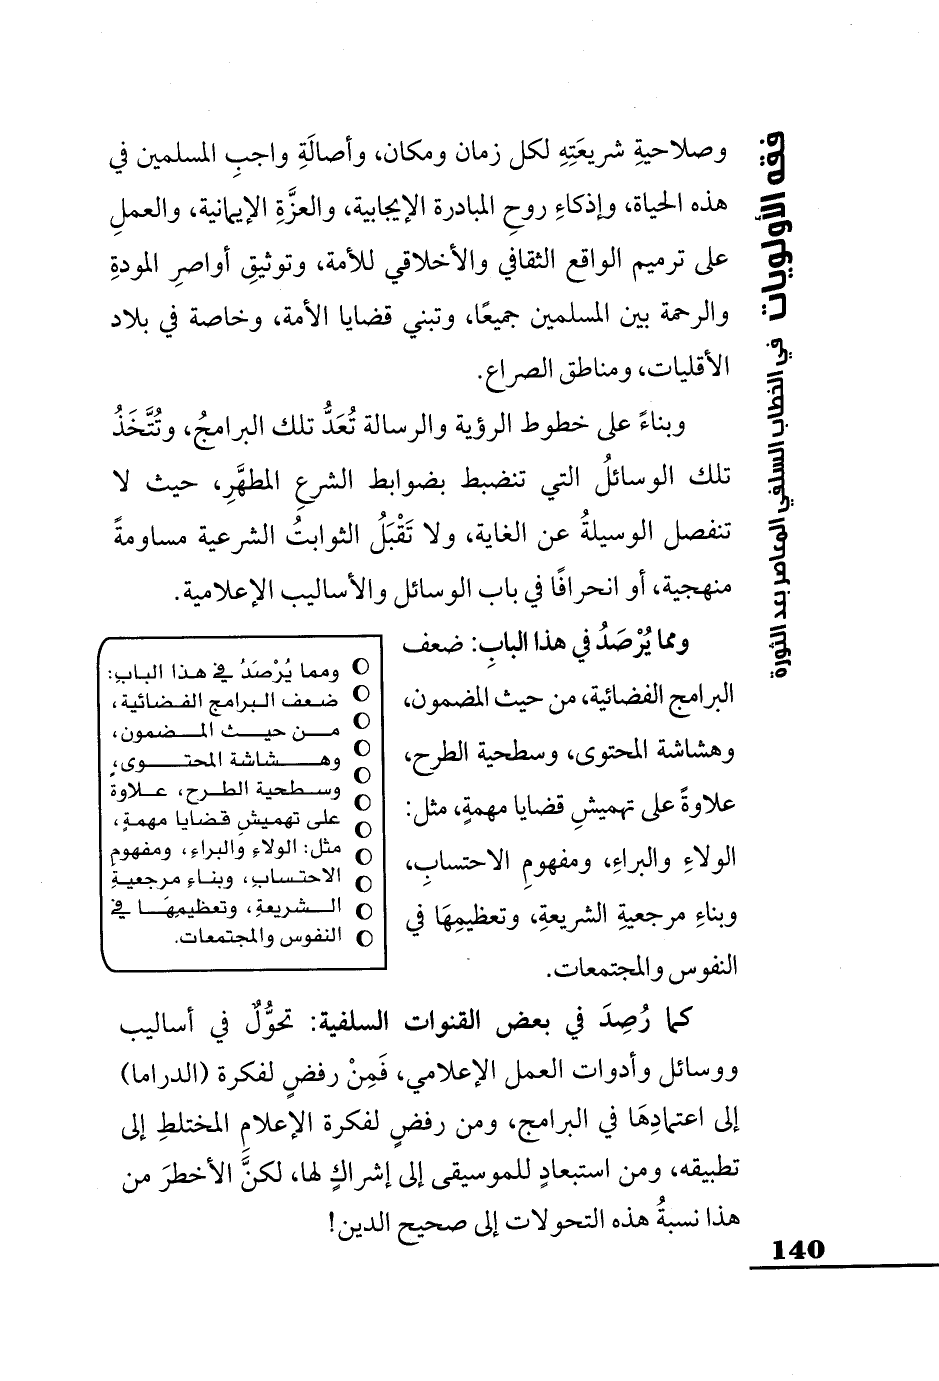 فقه الأولويات في الخطاب السلفي المعاصر بعد الثورة
وصلاحيةِ شريعَتِهِ لكل زمان ومكان، وأصالَةِ واجبِ المسلمين في
هذه الحياة، وإذكاءِ روحِ المبادرة الإيجابية، والعزَّةِ الإيمانية، والعملِ
على ترميم الواقع الثقافي والأخلاقي للأمة، وتوثيقِ أواصرِ المودةِ
والرحمة بين المسلمين جميعًا، وتبني قضايا الأمة، وخاصة في بلاد
الأقليات، ومناطق الصراع.
وبناءً على خطوط الرؤية والرسالة تُعَدُّ تلك البرامجُ، وتُتَّخَذُ
تلك الوسائلُ التي تنضبط بضوابط الشرعِ المطهَّرِ، حيث لا
تنفصل الوسيلةُ عن الغاية، ولا تَقْبَلُ الثوابتُ الشرعية مساومةً
منهجية، أو انحرافًا في باب الوسائل والأساليب الإعلامية.
ومما يُرْصَدُ في هذا البابِ: ضعف
البرامج الفضائية، من حيث المضمون،
وهشاشة المحتوى، وسطحية الطرح،
علاوةً على تهميشِ قضايا مهمةٍ، مثل:
الولاءِ والبراءِ، ومفهومِ الاحتسابِ،
وبناءِ مرجعيةِ الشريعةِ، وتعظيمِهَا في
النفوس والمجتمعات.
ومما يُرْصَدُ في هذا البابِ:
ضعف البرامج الفضائية،
من حيث المضمون،
وهشاشة المحتوى،
وسطحية الطرح، علاوة
على تهميشِ قضايا مهمةٍ،
مثل: الولاءِ والبراءِ، ومفهومِ
الاحتسابِ، وبناءِ مرجعيةِ
الشريعةِ، وتعظيمِهَا في
النفوس والمجتمعات.
كما رُصِدَ في بعض القنوات السلفية: تحوُّلٌ في أساليب
ووسائل وأدوات العمل الإعلامي، فَمِنْ رفضٍ لفكرة (الدراما)
إلى اعتمادِهَا في البرامج، ومن رفضٍ لفكرة الإعلامِ المختلطِ إلى
تطبيقه، ومن استبعادٍ للموسيقى إلى إشراكٍ لها، لكنَّ الأخطرَ من
هذا نسبةُ هذه التحولات إلى صحيح الدين!
140